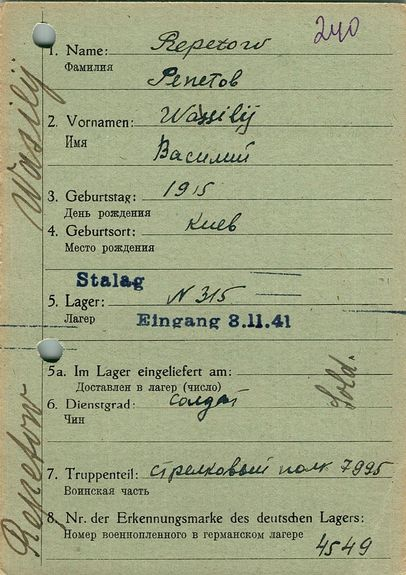 240
1. Name: Repetow
Фамилия Репетов
2. Vornamen: Wassilij
Имя Василий
3. Geburtstag: 1915
День рождения
4. Geburtsort: Киев
Место рождения
Stalag
5. Lager: N 315
Лагер
Eingang 3.11.41
5a. Im Lager eingeliefert am:
Доставлен в лагер (число)
6. Dienstgrad: солдат
Чин
Sold.
7. Truppenteil: стрелковый полк 7995
Воинская часть
8. Nr. der Erkennungsmarke des deutschen Lagers:
Номер военнопленного в германском лагере
4549
Repetow Wasilij